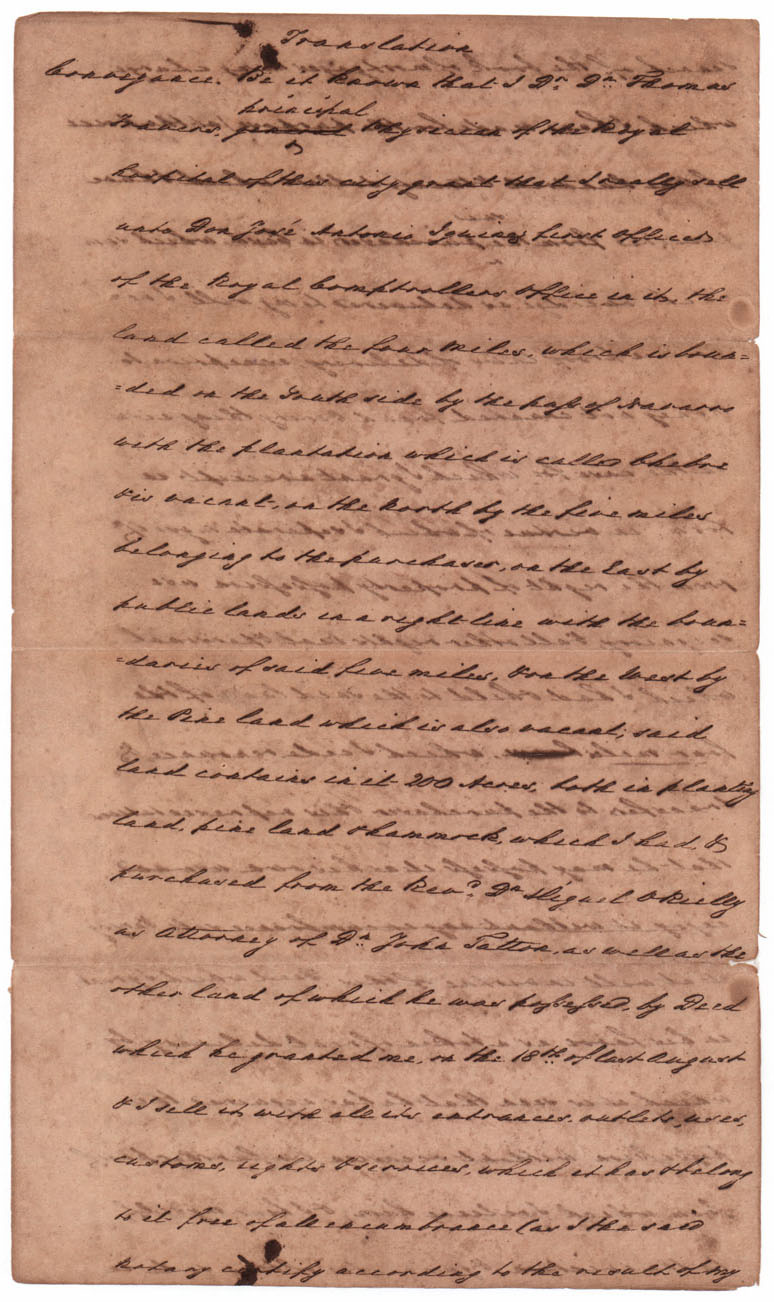 Translation
Conveyance. Be it known that I Dr. Dn. Thomas
principal
Travers, general Physician of the Royal
Hospital of this city grant that I really sell
unto Don José Antonio Yguiniz first Officer
of the Royal Comptrollers Office in it, the
land called the four Miles, which is boun=
=ded on the South side by the pass of Navarro
with the plantation which is called
& is vacant, on the North by the five miles
belonging to the purchaser, on the East by
public lands in a right line with the boun=
=daries of said five miles, & on the West by
the Pine land which is also vacant; said
land contains in it 200 Acres, both in planting
land, pine land & hammock, which I had, &
purchased from the Revd. Dn. Miguel O Rielly
as Attorney of Dn. John Tatton, as well as the
other land of which he was possessed, by Deed
which he granted me, on the 18th. of last August
& I sell it with all its entrances, outlets, uses,
customs, rights & services, which it has & belong
to it free of all encumbrance (as I the said
Notary certify according to the result of my